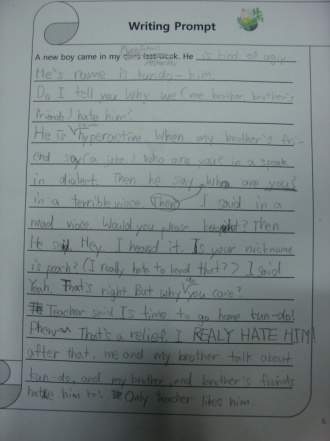 Writing Prompt
A new boy came in my class last week. He is kind of ugly
He's name is kundo-him.
Do I tell you why we (me brother brother's
friends) hate him?
He is very hyperactive. When my brother's fri-
end say (a joke) who are you? in a speak
in dialect. Then he say who are you?
in a terrible vioce. Then I said in a
mad vioce Would you please be quiet? Then
He said Hey I heard it. Is your nickname
is peach? (I really hate to heard that??) I said
Yeah. That's right But why you care?
Teacher said Is time to go home kun-do!
Phew~ That's a relief. I REALY HATE HIM!
after that, me and my brother talk about
kun-do. and my brother, and brother's friends
hate him too. Only teacher likes him.